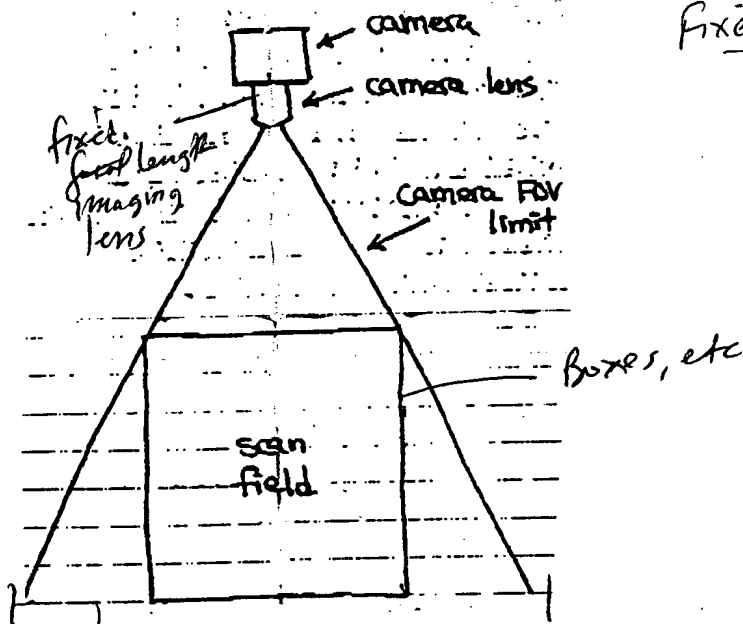 camera
camera lens
fixed.
focal length
imaging
lens
camera FOV
limit
Boxes, etc
scan
field